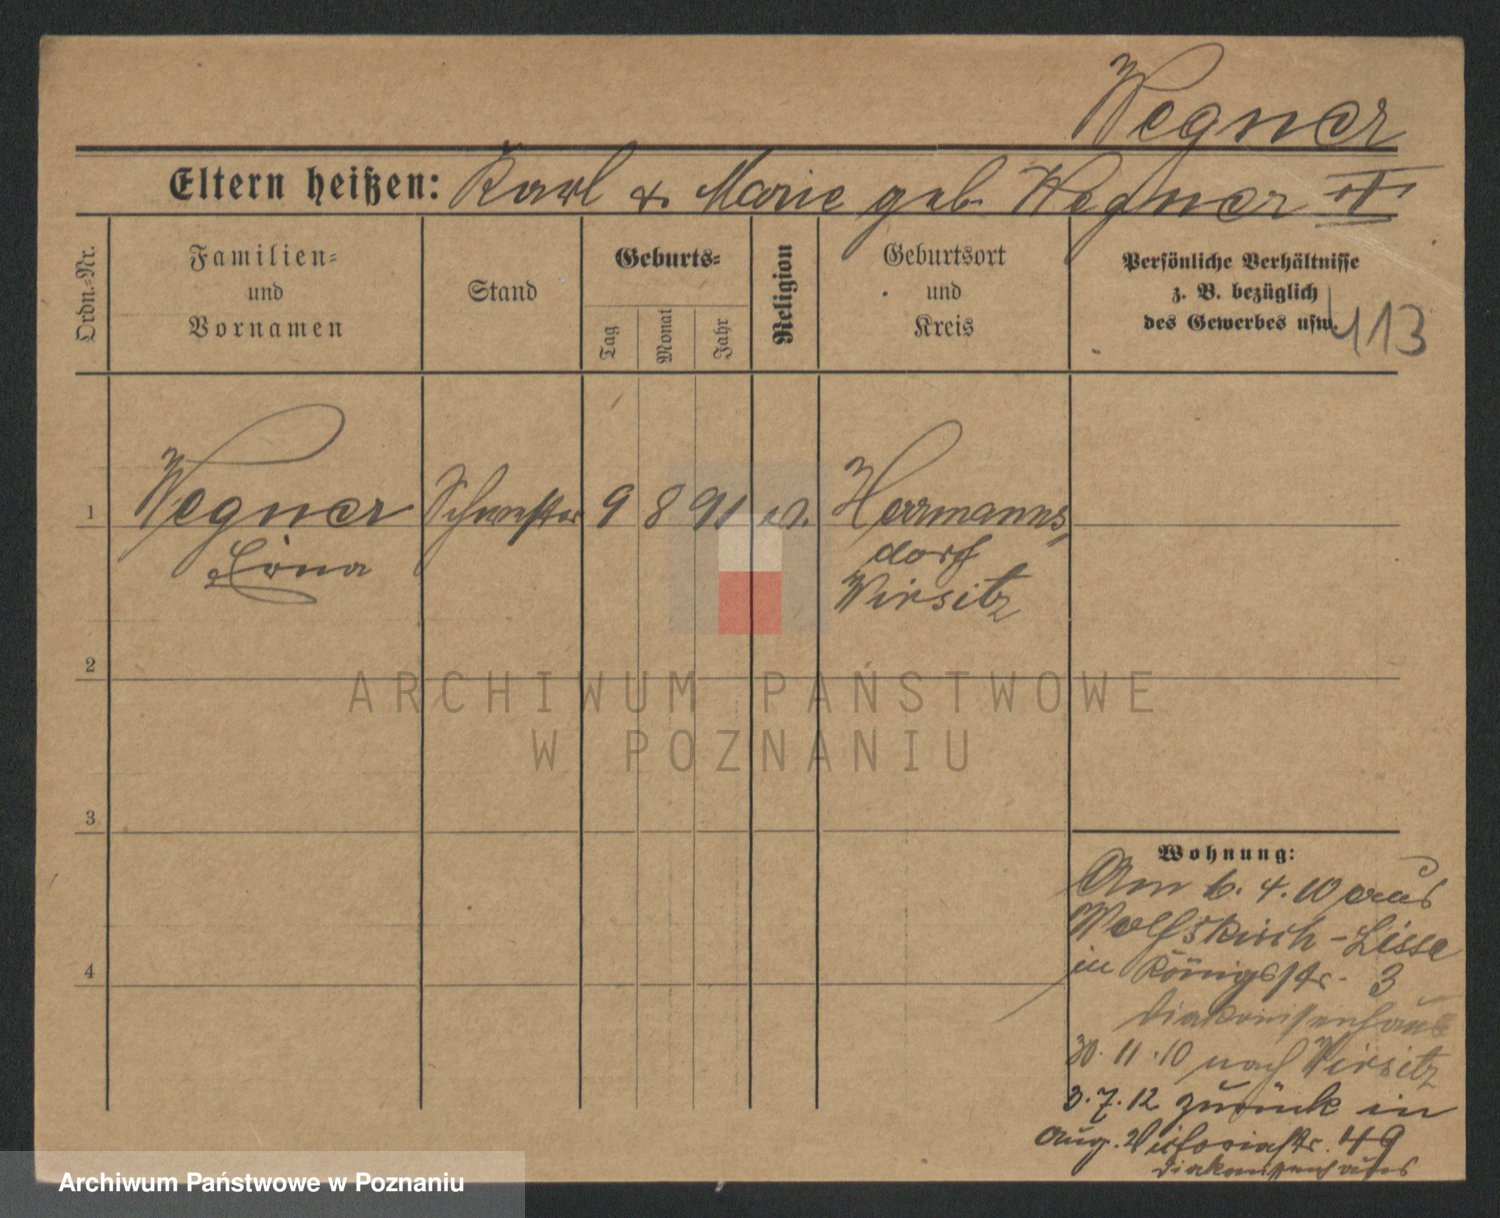 Wegner
Eltern heißen: Karl & Marie geb. Wegner II
Ordn.-Nr.
Familien-
und
Vornamen
Stand
Geburts-
Tag
Monat
Jahr
Religion
Geburtsort
und
Kreis
Persönliche Verhältnisse
z. B. bezüglich
des Gewerbes usw.
413
1 Wegner Schwester 9 8 91 ev. Herrmanns-
Lina dorf
Wirsitz
2
ARCHIWUM PAŃSTWOWE
W POZNANIU
3
Wohnung:
Am 6. 4. 10 aus
Wolfskirch-Lissa
in Königsstr. 3
4
Diakonissenhaus
30. 11. 10 nach Wirsitz
3. 7. 12 zurück in
Aug. Victoriastr. 49
Diakonissenhaus
Archiwum Państwowe w Poznaniu